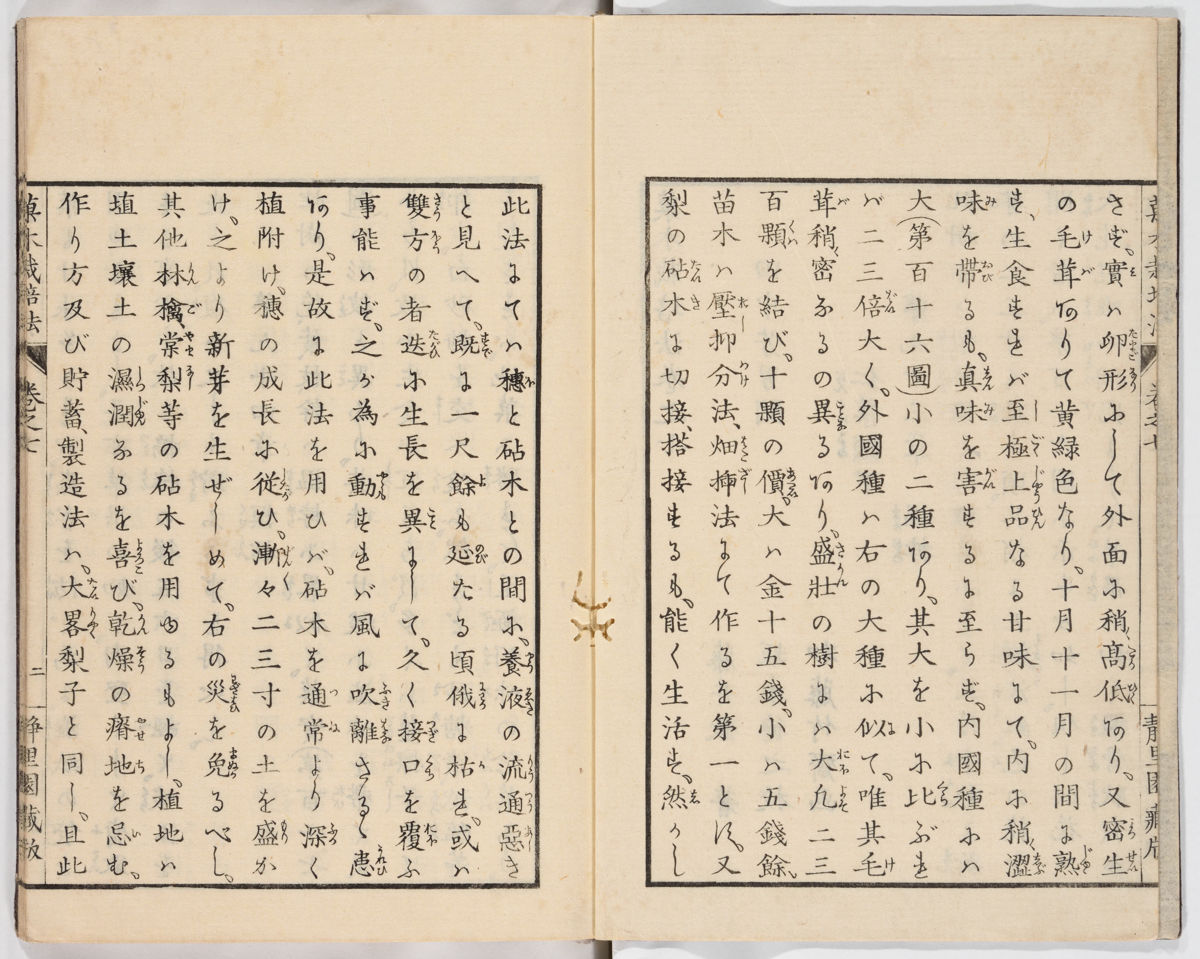 さず、實ハ卵形にして外面に稍〻高低あり、又密生
の毛茸ありて黄緑色なり、十月十一月の間に熟
す、生食すれバ至極上品なる甘味にて、内に稍〻澀
味を帶るも、真味を害するに至らず、内國種にハ
大(第百十六圖)小の二種あり、其大を小に比ぶれ
バ二三倍大く、外國種ハ右の大種に似て、唯其毛
茸稍〻密なるの異るあり、盛壯の樹にハ大凢二三
百顆を結び、十顆の價、大ハ金十五錢、小ハ五錢餘、
苗木ハ壓抑分法、畑挿法にて作るを第一とす、又
梨の砧木に切接、搭接するも、能く生活す、然かし
此法にてハ穗と砧木との間に、養液の流通惡き
と見へて、既に一尺餘も延たる頃俄に枯れ、或ハ
雙方の者迭に生長を異にして、久く接口を覆ふ
事能ハず、之が為に動すれバ風に吹離さるゝ患
あり、是故に此法を用ひバ、砧木を通常より深く
植附け、穗の成長に從ひ、漸々二三寸の土を盛か
け、之より新芽を生ぜしめて、右の災を免るべし、
其他林檎、常梨等の砧木を用ゆるもよし、植地ハ
埴土壤土の濕潤なるを喜び、乾燥の瘠地を忌む、
作り方及び貯蓄、製造法ハ、大畧梨子と同し、且此
菓木栽培法 卷之七 二 靜里園藏版